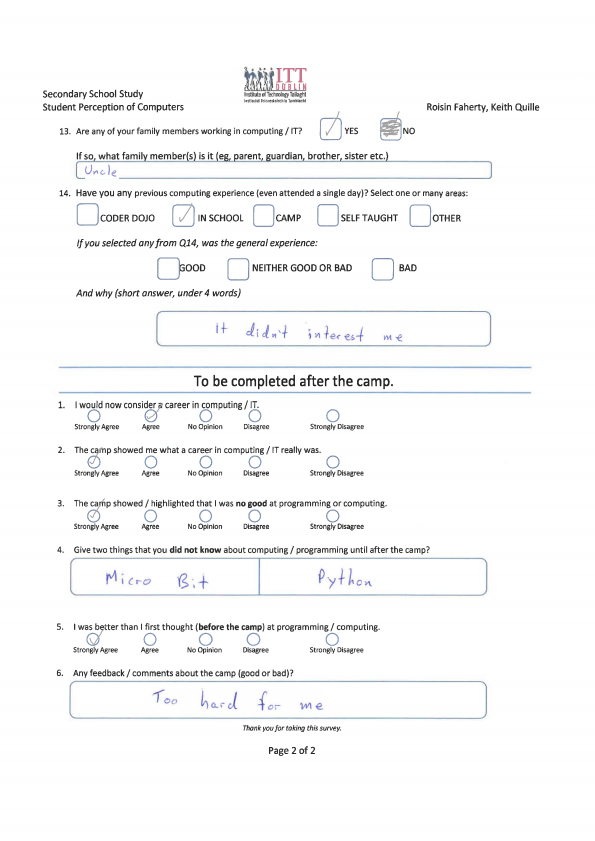 ITT
DUBLIN
Institute of Technology Tallaght
Secondary School Study
Student Perception of Computers
Roisin Faherty, Keith Quille
13. Are any of your family members working in computing / IT? YES NO
If so, what family member(s) is it (eg, parent, guardian, brother, sister etc.)
Uncle
14. Have you any previous computing experience (even attended a single day)? Select one or many areas:
CODER DOJO IN SCHOOL CAMP SELF TAUGHT OTHER
If you selected any from Q14, was the general experience:
GOOD NEITHER GOOD OR BAD BAD
And why (short answer, under 4 words)
It didn't interest me
To be completed after the camp.
1. I would now consider a career in computing / IT.
Strongly Agree Agree No Opinion Disagree Strongly Disagree
2. The camp showed me what a career in computing / IT really was.
Strongly Agree Agree No Opinion Disagree Strongly Disagree
3. The camp showed / highlighted that I was no good at programming or computing.
Strongly Agree Agree No Opinion Disagree Strongly Disagree
4. Give two things that you did not know about computing / programming until after the camp?
Micro Bit Python
5. I was better than I first thought (before the camp) at programming / computing.
Strongly Agree Agree No Opinion Disagree Strongly Disagree
6. Any feedback / comments about the camp (good or bad)?
Too hard for me
Thank you for taking this survey.
Page 2 of 2